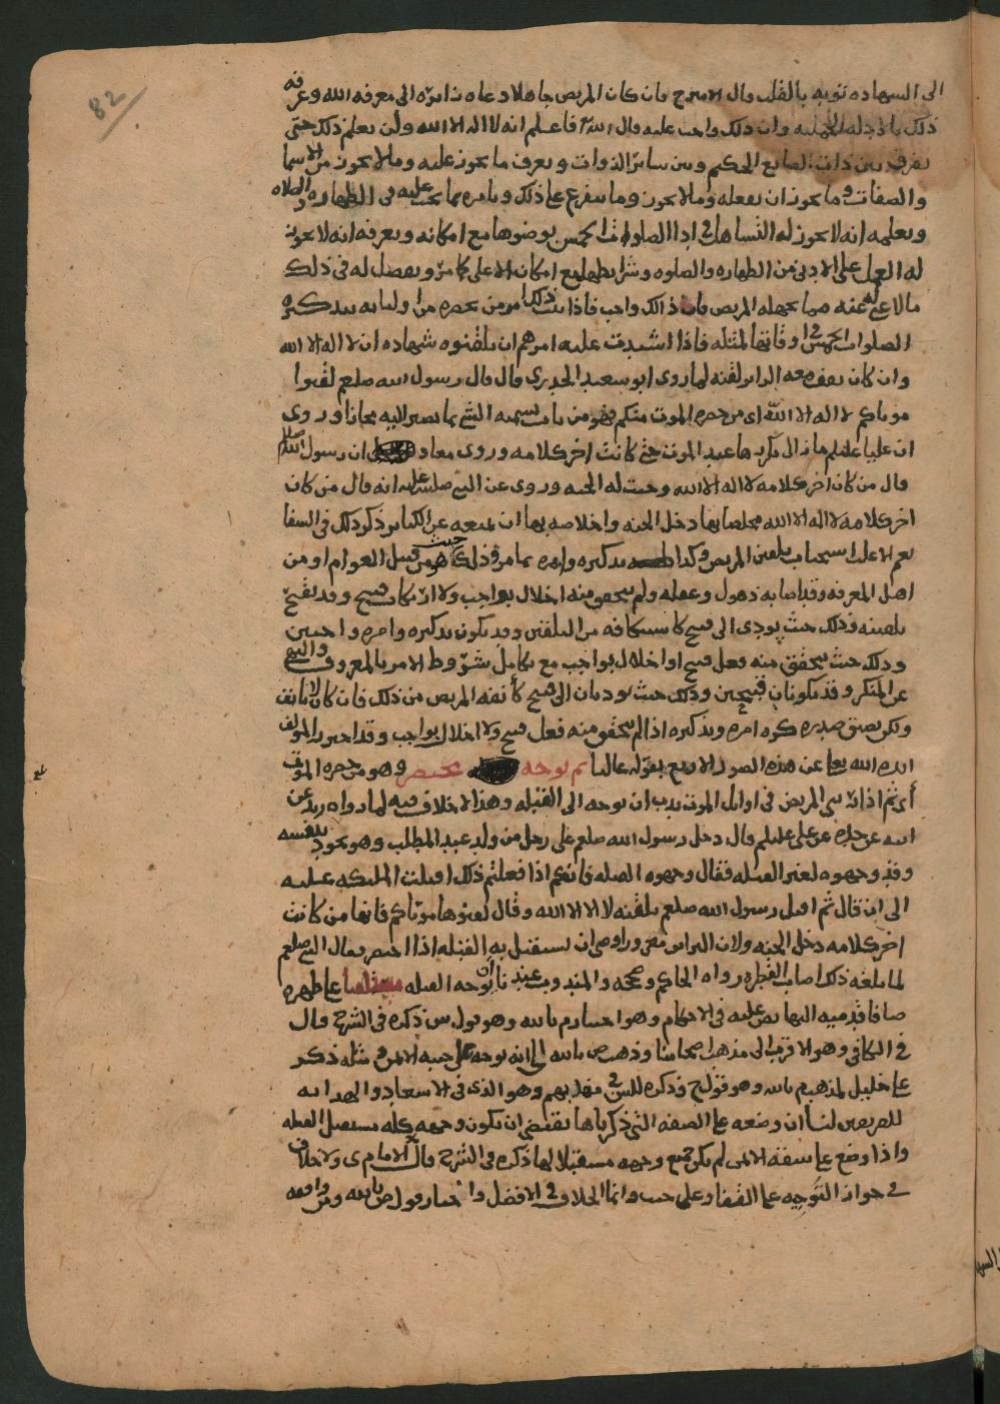 82
الى الشهاده توبه بالقلب قال الا فان كان المريض جاهلا دعاه الى معرفه الله وعرفه
ذلك بالادله وان ذلك واجب عليه قال الله فاعلم انه لا اله الا الله ولن يعلم ذلك حتى
يفرق بين ذات الصانع الحكيم وبين سائر الذوات ويعرف ما يجوز عليه وما لا يجوز من الاسما
والصفات وما يجوز ان يفعله وما لا يجوز وما يتفرع على ذلك ويامره بما يجب عليه في الطهاره والصلاه
ويعلمه انه لا يجوز له التساهل في ادا الصلوات الخمس بوضوها مع امكانه ويعرفه انه لا يجوز
له العمل على الادنى من الطهاره والصلوه مع امكان الاعلى كما مر ويفصل له في ذلك
مالا غنى له عنه مما يجهله المريض فان ذلك واجب فاذا ذلك امر من يحضره من اوليائه بتذكيره
الصلوات الخمس في اوقاتها لمثله فاذا اشتدت عليه امرهم ان يلقنوه شهاده ان لا اله الا الله
وان كان لقنه لما روى ابو سعيد الخدري قال قال رسول الله صلعم لقنوا
موتاكم لا اله الا الله اي من حضره الموت منكم فهو من باب تسميه الشي بما يصير اليه مجازا وروى
ان عليا علللم ما زال يكررها عند الموت حتى كانت اخر كلامه وروى معاد ان رسول الله صلعم
قال من كان اخر كلامه لا اله الا الله وجبت له الجنه وروى عن النبي صلى الله عليه انه قال من كان
اخر كلامه لا اله الا الله مخلصا بها دخل الجنه واخلاصه بها ان تمنعه عن الكبائر ذكر ذلك في الشفا
نعم الاغلب استحباب تلقين المريض وكذا تذكيره وامره بما مر وذلك حيث هو من قبيل العوام او من
اهل المعرفه وقد اصابه ذهول وغفله ولم يتحقق منه اخلال بواجب ولا ارتكاب قبيح وقد يقبح
تلقينه وذلك حيث يودي الى قبيح كاستنكافه من التلقين وقد يكون تذكيره وامره واجبين
وذلك حيث يتحقق منه فعل قبيح او اخلال بواجب مع تكامل شروط الامر بالمعروف والنهي
عن المنكر وقد يكونان قبيحين وذلك حيث يوديان الى قبيح كأنفه المريض من ذلك فان كان لا يانف
ولكن يضيق صدره كره امره وتذكيره اذا لم يتحقق منه فعل قبيح ولا اخلال بواجب وقد احترز المولف
ايده الله تعا عن هذه الصور الاربع بقوله غالبا ثم يوجه محتضر وهو من حضره الموت
أي ثم اذا المريض في اوائل الموت ندب ان يوجه الى القبله وهذا لا خلاف فيه لما رواه زيد عن
ابيه عن جده عن علي علللم قال دخل رسول الله صلعم على رجل من ولد عبد المطلب وهو يجود بنفسه
وقد وجهوه لغير القبله فقال وجهوه القبله فانكم اذا فعلتم ذلك اقبلت الملئكه عليه
الى ان قال ثم اقبل رسول الله صلعم يلقنه لا اله الا الله وقال لقنوها موتاكم فانها من كانت
اخر كلامه دخل الجنه ولان البرا بن معرور اوصى ان يستقبل به القبله اذا احتضر فقال النبي صلعم
لما بلغه ذلك اصاب الفطره رواه الحاكم وصححه والمندوب عندنا ان يوجه القبله مستلقيا على ظهره
صافا قدميه اليها نص عليه في الاحكام وهو اختيار م بالله وهو قول س ذكره في الشرح قال
في الكافي وهو الاقرب الى مذهب اصحابنا وذهب ص بالله الى انه يوجه على جنبه الايمن ومثله ذكر
علي خليل لمذهب م بالله وهو قول ح وذكره للش في مهذبهم وهو الذي في الاسعاد والهدايه
للفريقين لنا ان وضعه على الصفه التي ذكرناها يقتضي ان يكون وجهه كله مستقبل القبله
واذا وضع على شقه الايمن لم يكن جميع وجهه مستقبلا لها ذكره في الشرح قال الامام ى ولا خلاف
في جواز التوجيه على القفا وعلى جنب وانما الخلاف في الافضل واختار قول ص بالله ومن وافقه